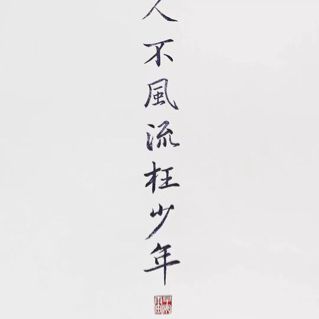 人不風流枉少年